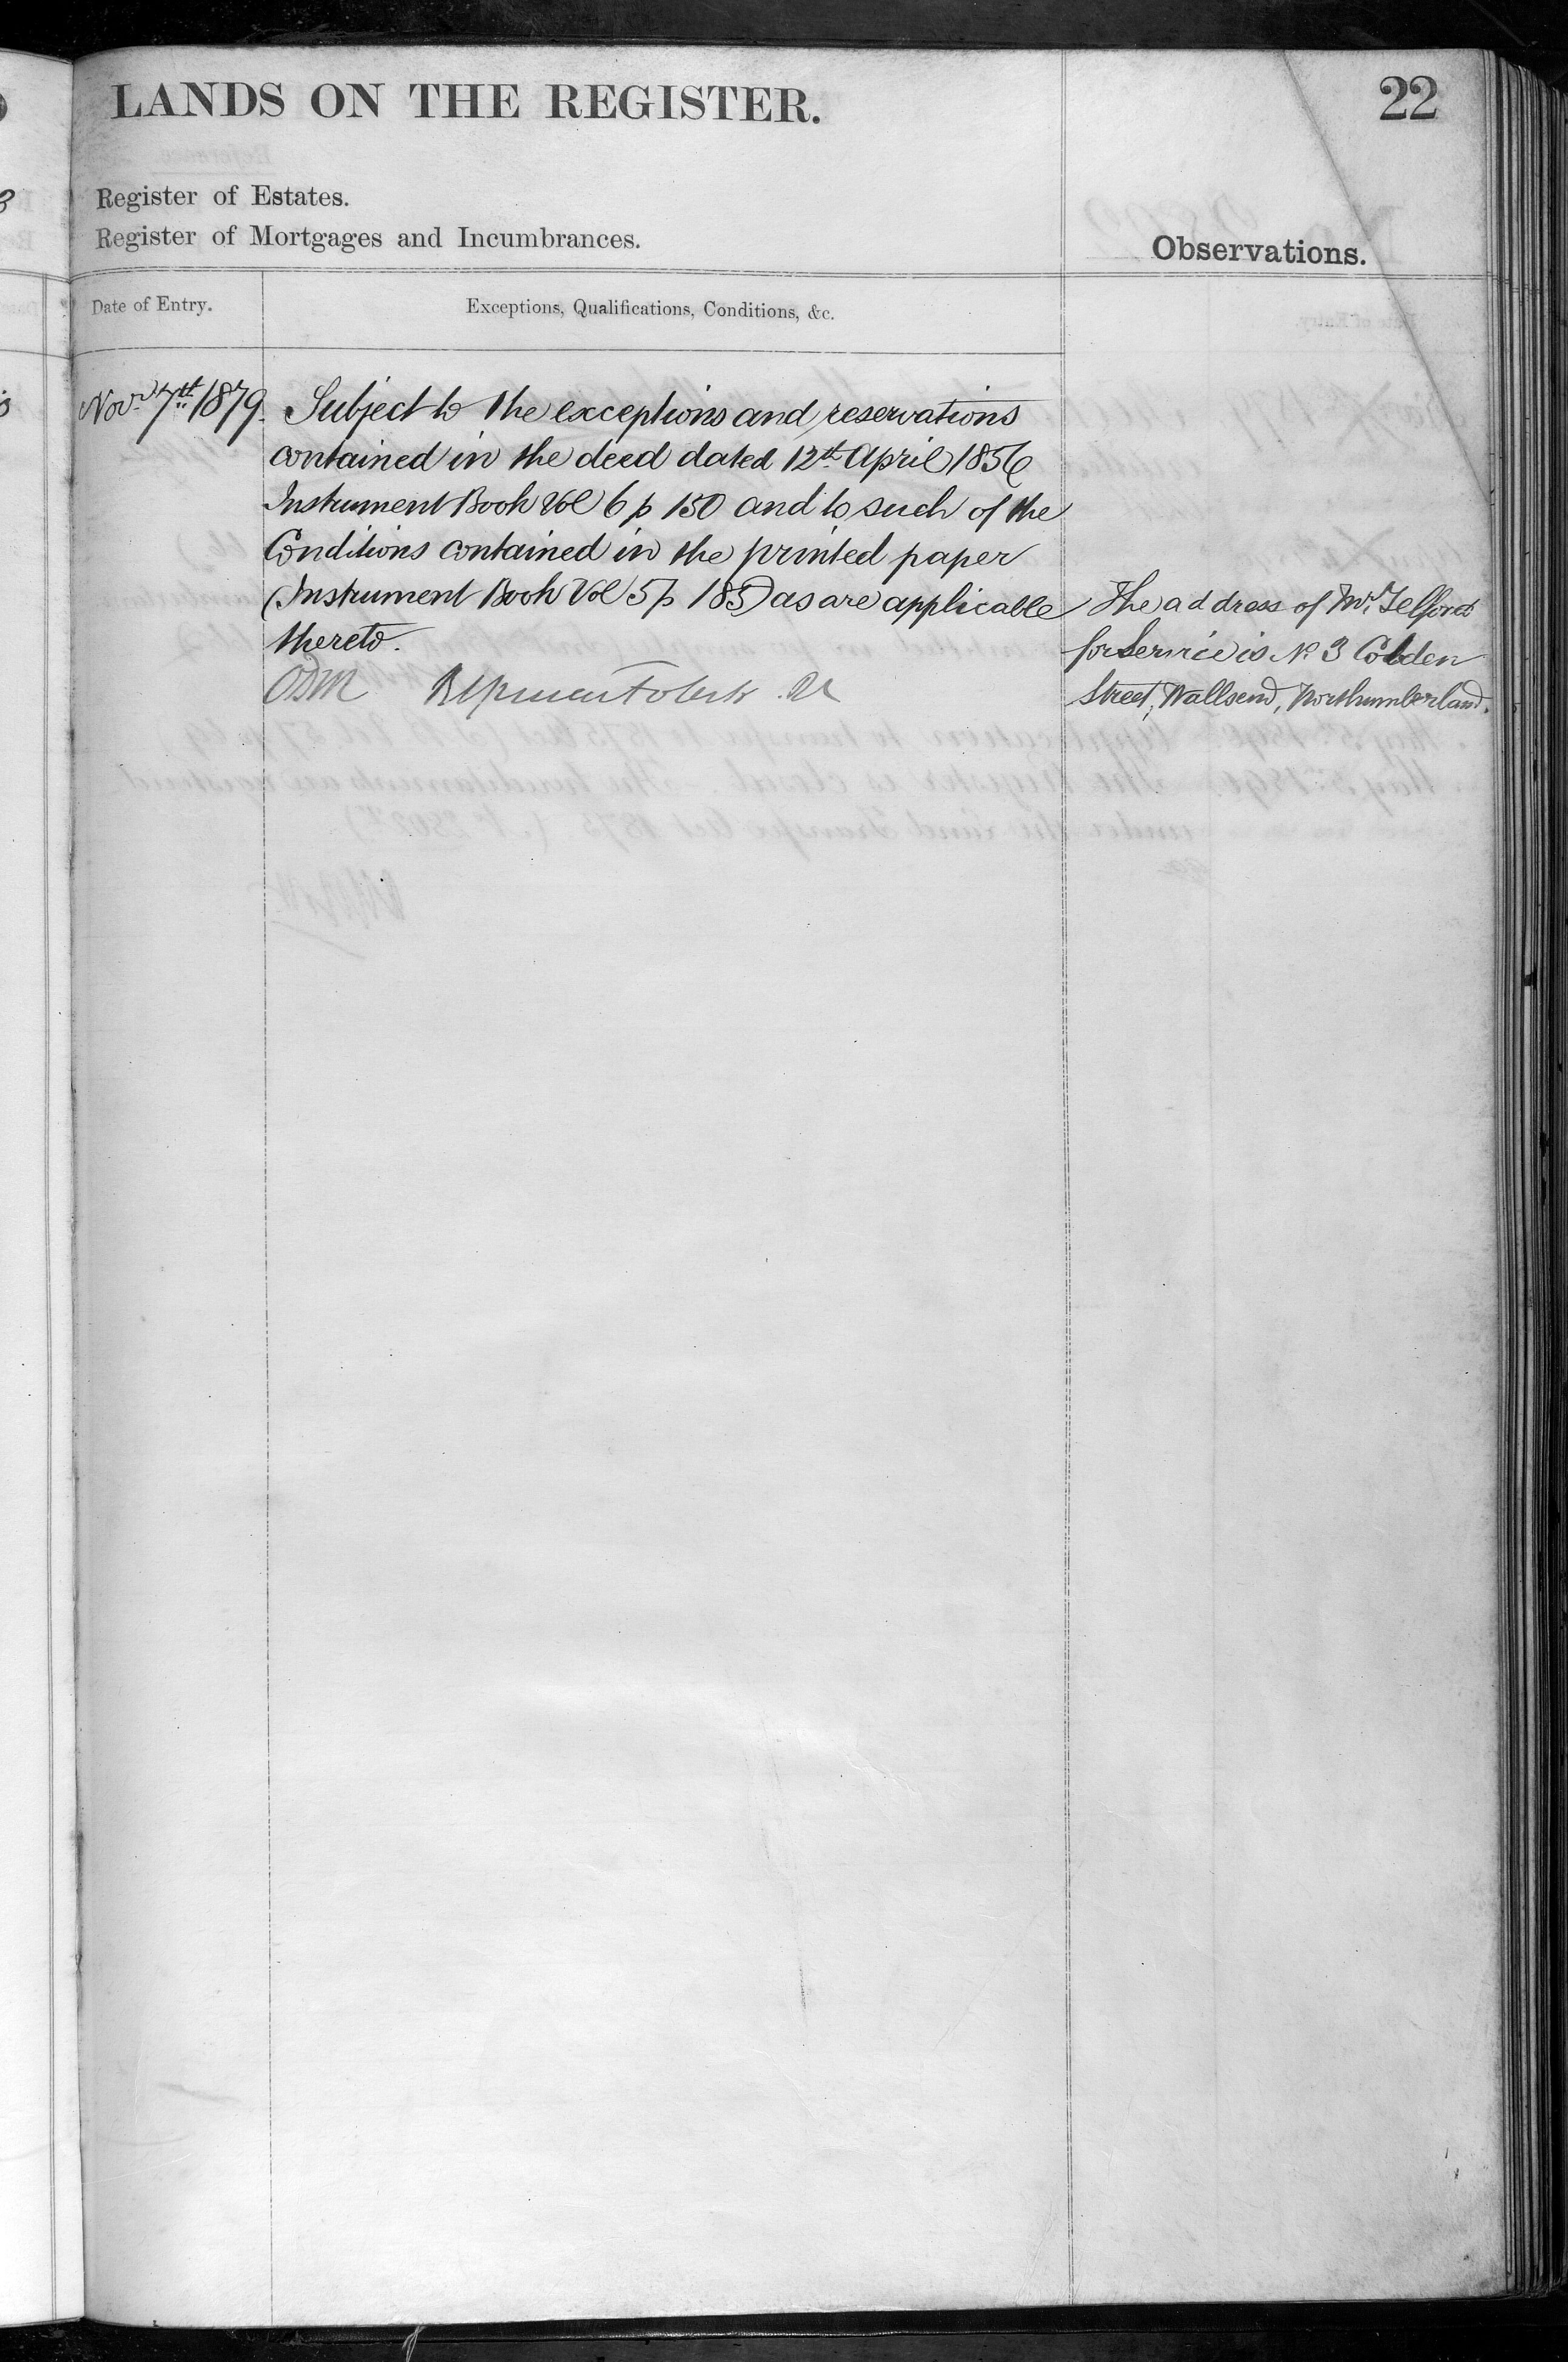 LANDS ON THE REGISTER.
22
Register of Estates.
Register of Mortgages and Incumbrances.
Observations.
Date of Entry.
Exceptions, Qualifications, Conditions, &c.
Novr 7th 1879. Subject to the exceptions and reservations
contained in the deed dated 12th April 1856
Instrument Book Vol 6 p 150 and to such of the
Conditions contained in the printed paper
(Instrument Book Vol 5 p 185) as are applicable
thereto.
ODM
The address of Mr. Telford
for Service is No 3 Cobden
Street, Wallsend, Northumberland.